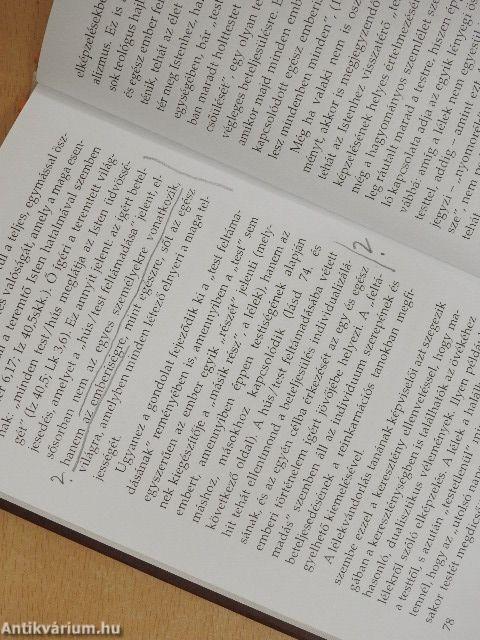 ul a teljes, egymással ösz-
s valóságát, amely a maga esen-
a teremtő Isten hatalmával szemben
6,17; Iz 40,5skk.). Ő ígéri a teremtett világ-
nak: „minden test/hús meglátja az Isten üdvössé-
gét” (Iz 40,5; Lk 3,6). Ez annyi jelent: az ígért betel-
jesedés, amelyet a „hús/test feltámadása” jelent, el-
sősorban nem az egyes személyekre vonatkozik,
? hanem az emberiségre, mint egészre, sőt az egész
világra, amelyben minden létező elnyeri a maga tel-
jességét.
Ugyanez a gondolat fejeződik ki a „test feltáma-
dásának” reményében is, amennyiben a „test” sem
egyszerűen az ember egyik „részét” jelenti (mely-
nek kiegészítője a „másik rész”, a lélek), hanem az
embert, amennyiben éppen testiségének alapján
máshoz, másokhoz kapcsolódik (lásd 74. és
következő oldal). A hús/test feltámadásába vetett
hit tehát ellentmond a beteljesülés individualizálá-
sának, és az egyén célba érkezését az egy és egész
emberi történelem ígért jövőjébe helyezi. A „feltá-
madás” szemben áll az individuum szerepének és
beteljesedésének a reinkarnációs tanokban megfi-
gyelhető kiemelésével.
/?
A lélekvándorlás tanának képviselői azt szegezik
szembe ezzel a keresztény ellenvetéssel, hogy ma-
gában a kereszténységben is találhatók az övékéhez
hasonló, dualisztikus vélemények. Ilyen példá
lélekről szóló elképzelés. A lélek a halálk
a testtől, s azután „testetlenül” mi
tennél, hogy az „utolsó
sakor testét
78
elképzelésébe
alizmus. Ez is
sok teológus haj
és egész ember
ténik, tehát az élet
ér meg Istenhez, ha
egységében, bár „test
ban maradt holttestet
egy olyan te
végleges beteljesülésre. E
amikor majd minden emb
kapcsolódott egész emberi
lesz mindenben minden”. (1
Még ha valaki nem is osz
ményt, akkor is megjegyzendő
tehát az Istenhez visszatérő „te
képzelésének helyes értelmezésé
még a hagyományos szemlélet sze
leg ráutalt marad a testre, hiszen ép
tó kapcsolata adja az egyik lényegi ös
vábbá: amíg a lélek nem egyesül
testtel, addig – amint ez
jegyzi – „nyomoré
sze”, nem po
tehát
Antikvárium.hu